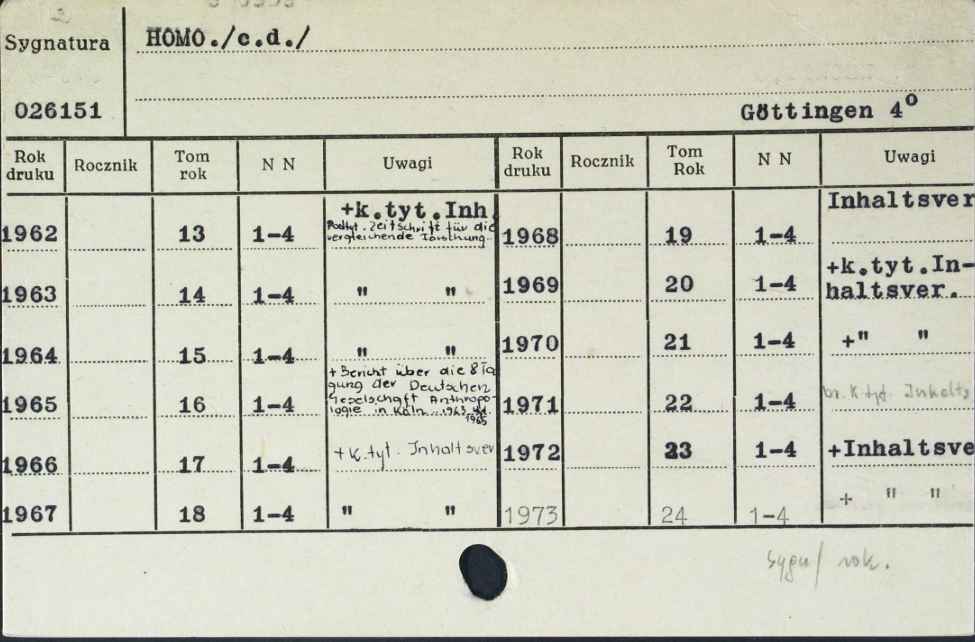 Sygnatura
HOMO./c.d./
026151
Göttingen 4°
Rok druku Rocznik Tom rok N N Uwagi Rok druku Rocznik Tom Rok N N Uwagi
+k.tyt.Inh.
Podtyt. Zeitschrift für die
vergleichende Forschung.
1962 13 1-4
1963 14 1-4 " "
1964 15 1-4 " "
+ Bericht über die 8 Ta
gung der Deutschen
Geselschaft Anthropo-
logie in Köln 1963
1965
1965 16 1-4
1966 17 1-4 + k.tyt. Inhaltsver
1967 18 1-4 " "
Inhaltsver
1968 19 1-4
+k.tyt.In-
1969 20 1-4 haltsver.
1970 21 1-4 +" "
1971 22 1-4 br. k.tyt. Inhalts
1972 23 1-4 +Inhaltsve
1973 24 1-4 + " "
sygn/ rok.